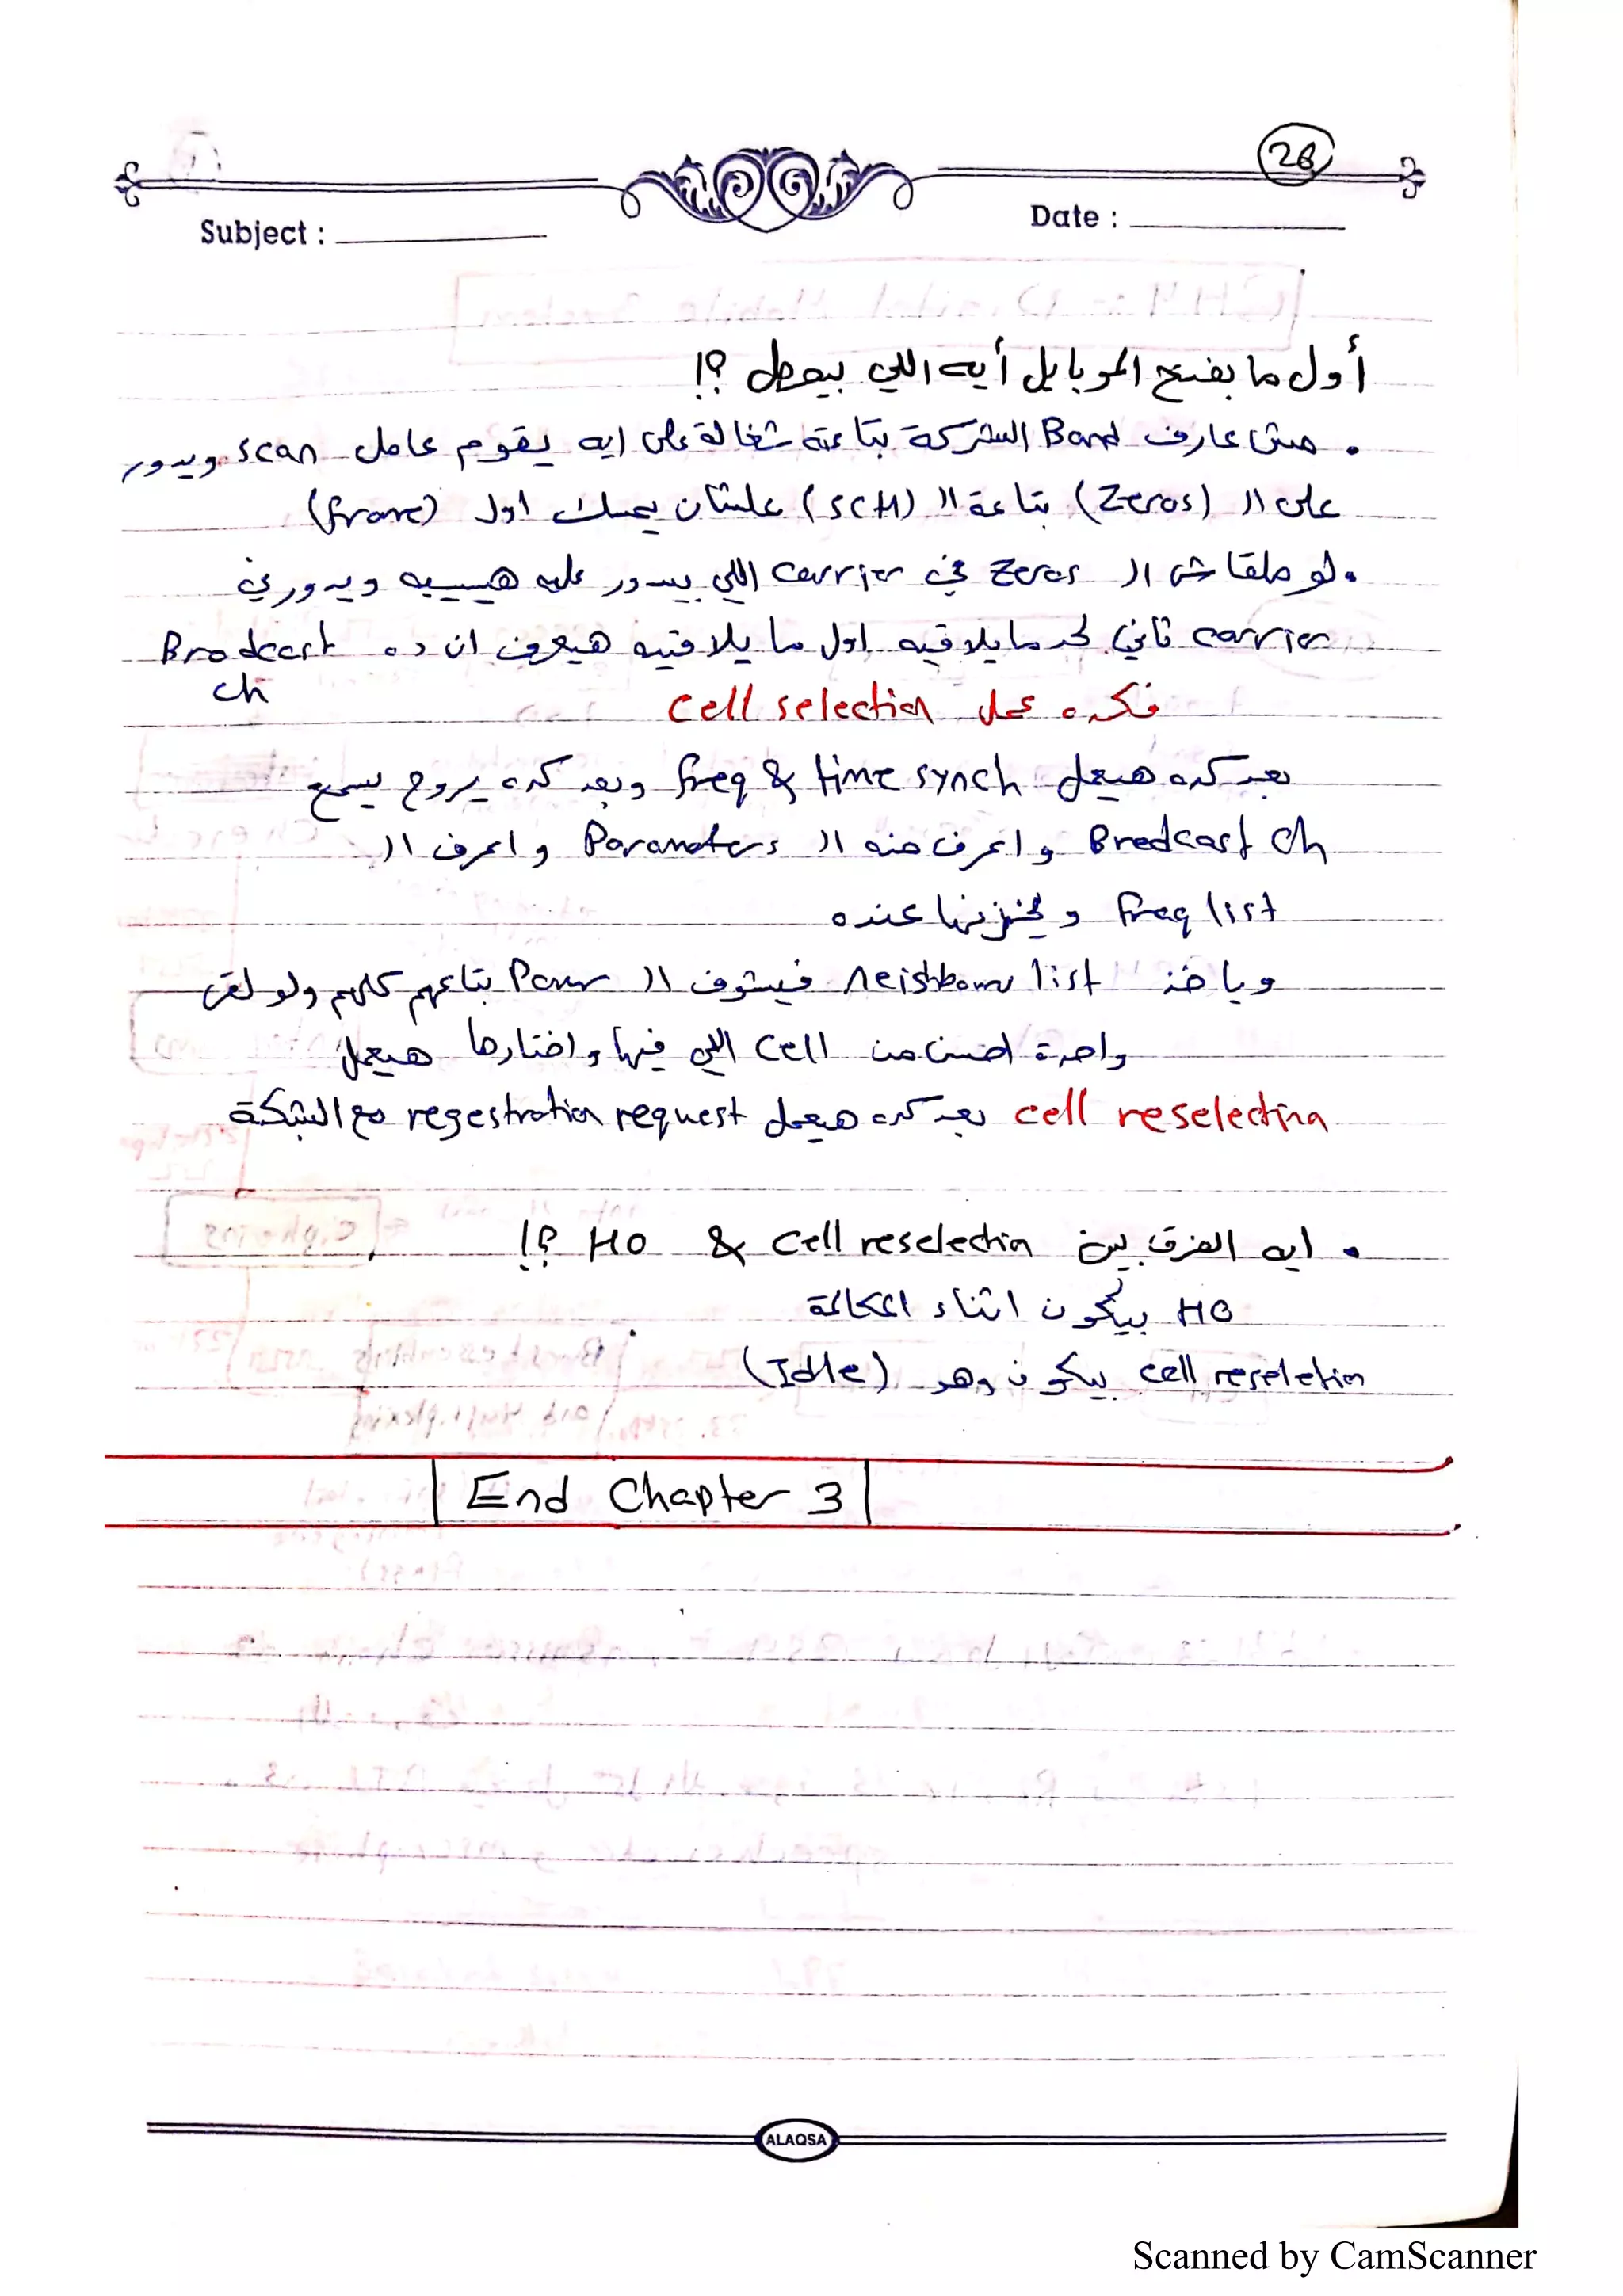 26
Subject :
Date :
أول ما بفتح الموبايل أيه اللي بيحصل ؟!
• مش عارف Band الشركة بتاعته شغالة على ايه يقوم عامل scan ويدور
على الـ (Zeros) بتاعة الـ (SCH) علشان يمسك اول (frame)
• لو ملقاش الـ Zeros في carrier اللي بيدور عليه هيسيبه ويدور في
carrier تاني لحد ما يلاقيه اول ما يلاقيه هيعرف ان ده Brodcast
ch
فكده عمل cell selection
بعد كده هيعمل freq & time synch وبعد كده يروح يسمع
Bredcast ch واعرف منه الـ Parameters واعرف الـ
freq list ويخزنها عنده
وياخد neighbour list فيشوف الـ Power بتاعهم كلهم ولو لقى
واحدة احسن من cell اللي فيها واختارها هيعمل
cell reselection بعد كده هيعمل regestration request مع الشبكة
• ايه الفرق بين cell reselection & HO ؟!
HO بيكون اثناء المكالمة
cell reseletion بيكون وهو (Idle)
End Chapter 3
ALAQSA
Scanned by CamScanner